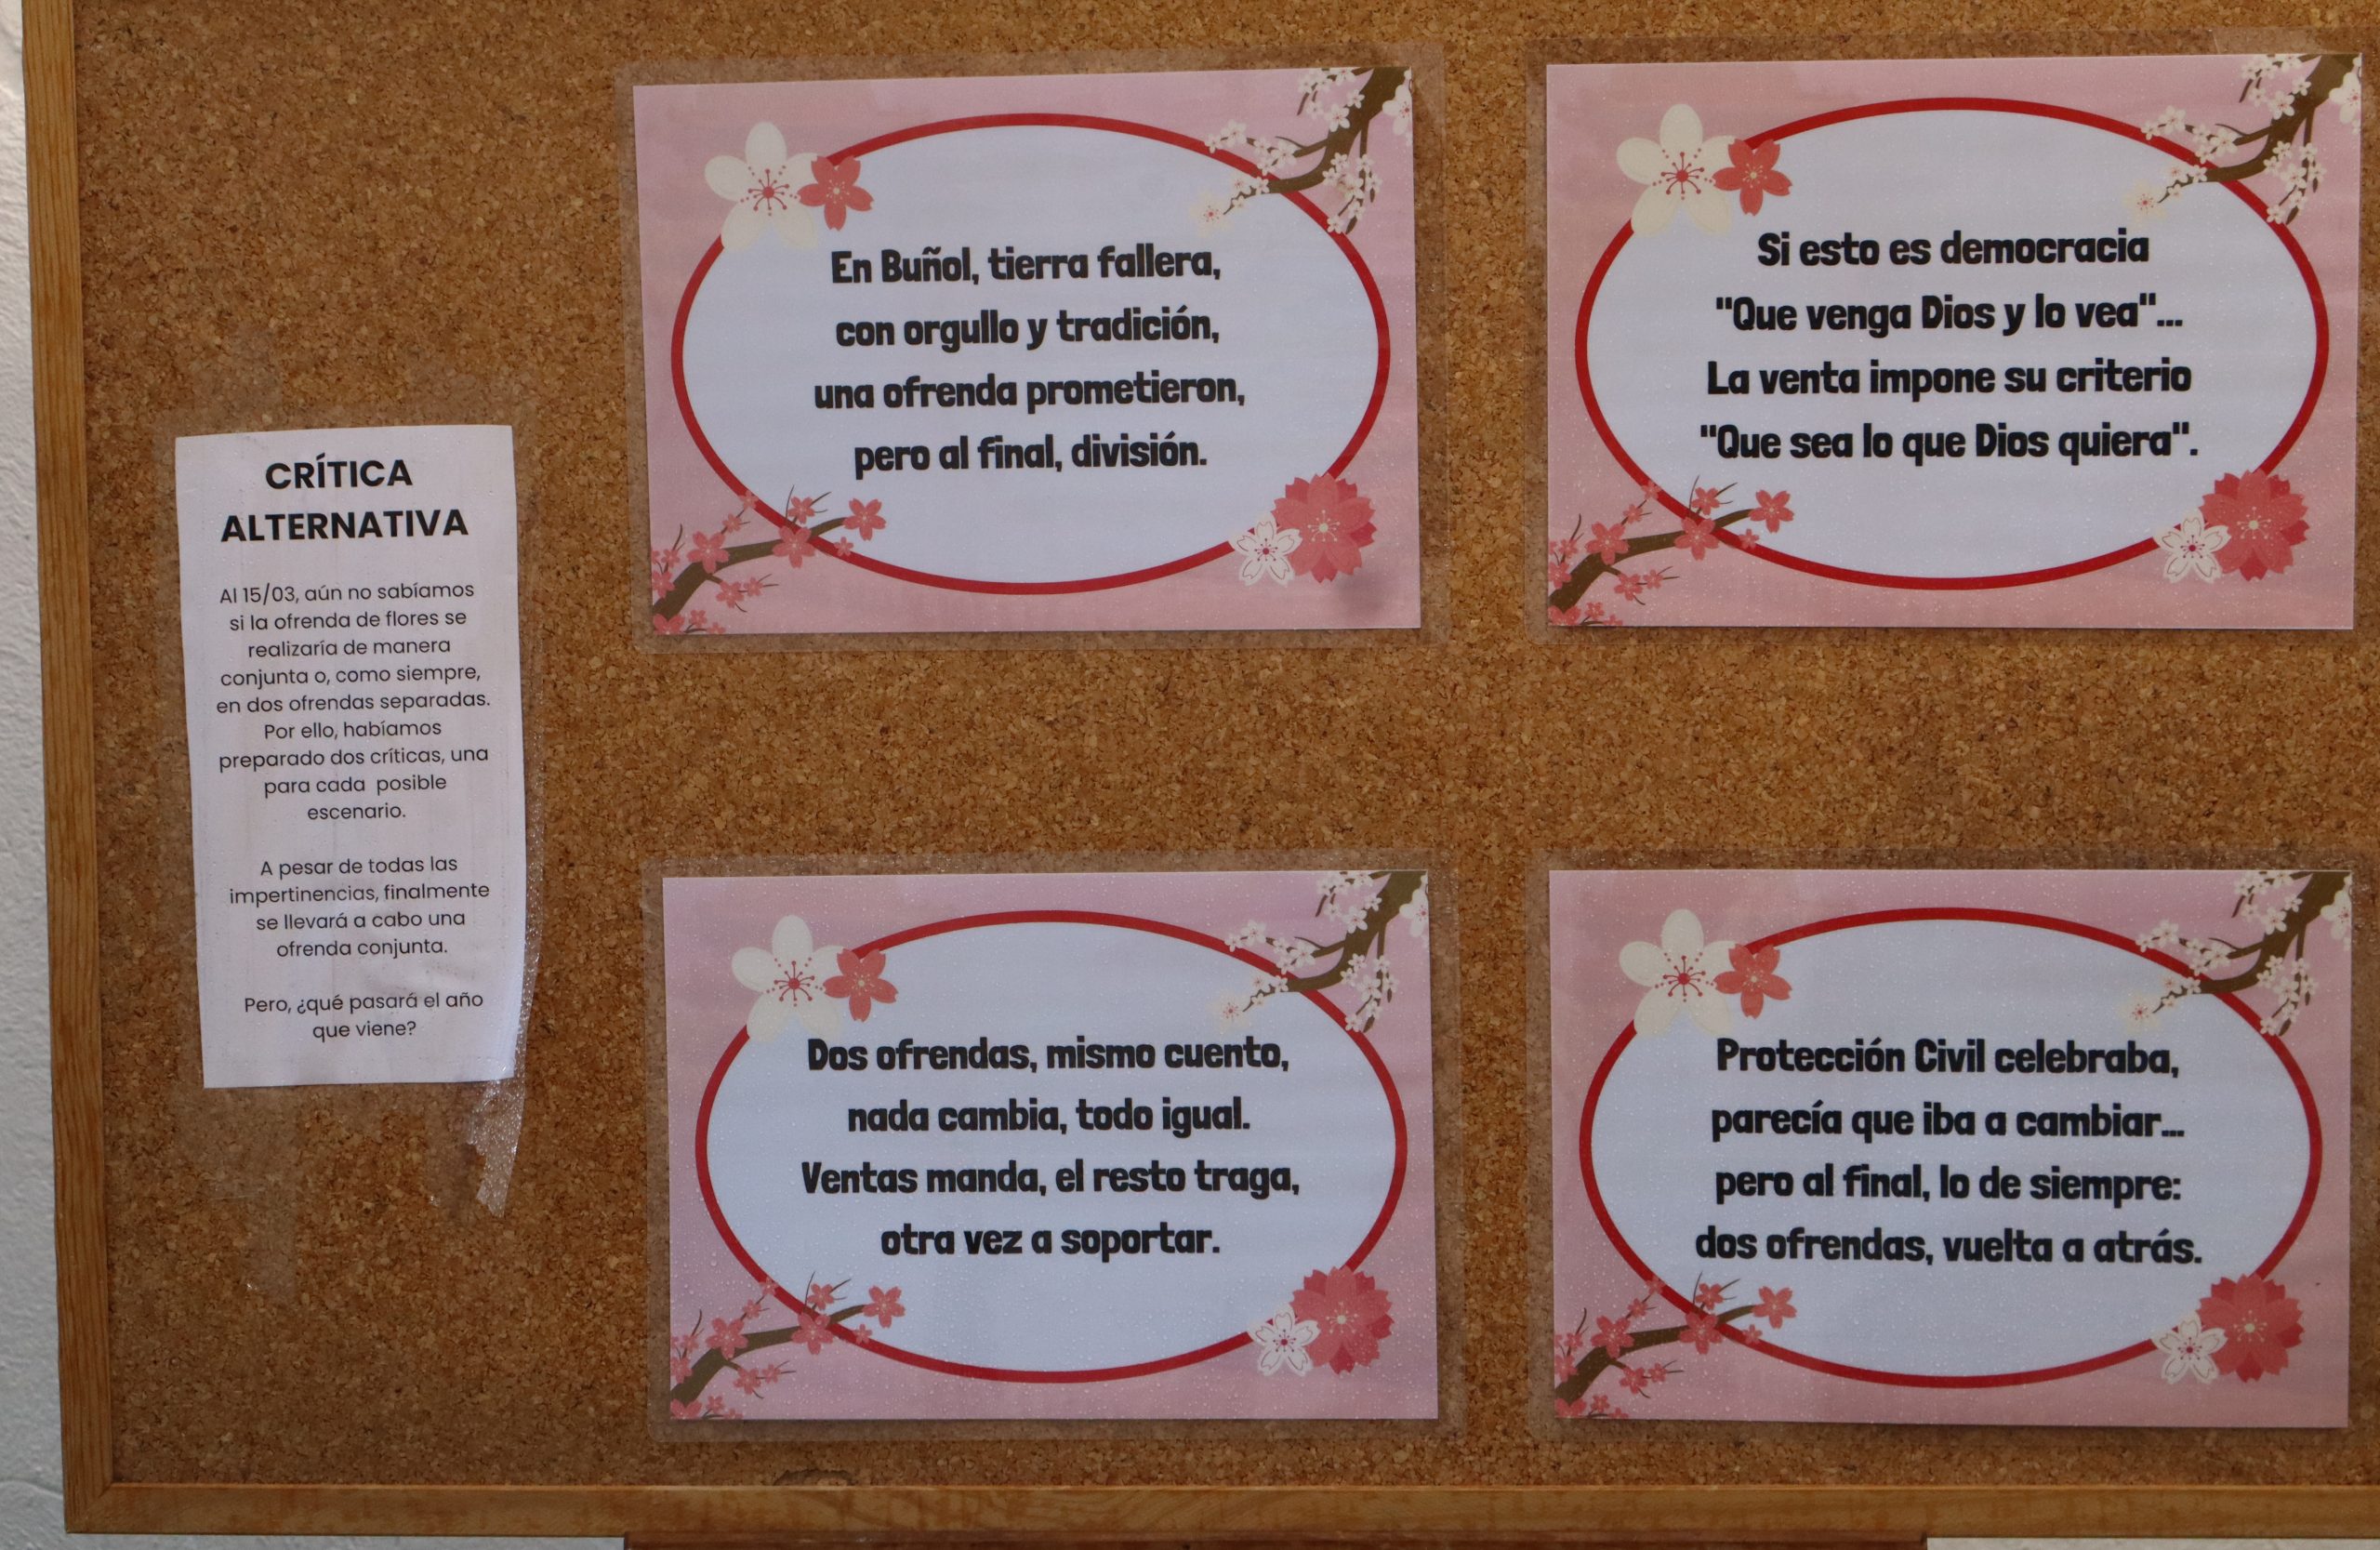 CRÍTICA
ALTERNATIVA
Al 15/03, aún no sabíamos
si la ofrenda de flores se
realizaría de manera
conjunta o, como siempre,
en dos ofrendas separadas.
Por ello, habíamos
preparado dos críticas, una
para cada posible
escenario.
A pesar de todas las
impertinencias, finalmente
se llevará a cabo una
ofrenda conjunta.
Pero, ¿qué pasará el año
que viene?
En Buñol, tierra fallera,
con orgullo y tradición,
una ofrenda prometieron,
pero al final, división.
Si esto es democracia
"Que venga Dios y lo vea"...
La venta impone su criterio
"Que sea lo que Dios quiera".
Dos ofrendas, mismo cuento,
nada cambia, todo igual.
Ventas manda, el resto traga,
otra vez a soportar.
Protección Civil celebraba,
parecía que iba a cambiar...
pero al final, lo de siempre:
dos ofrendas, vuelta a atrás.